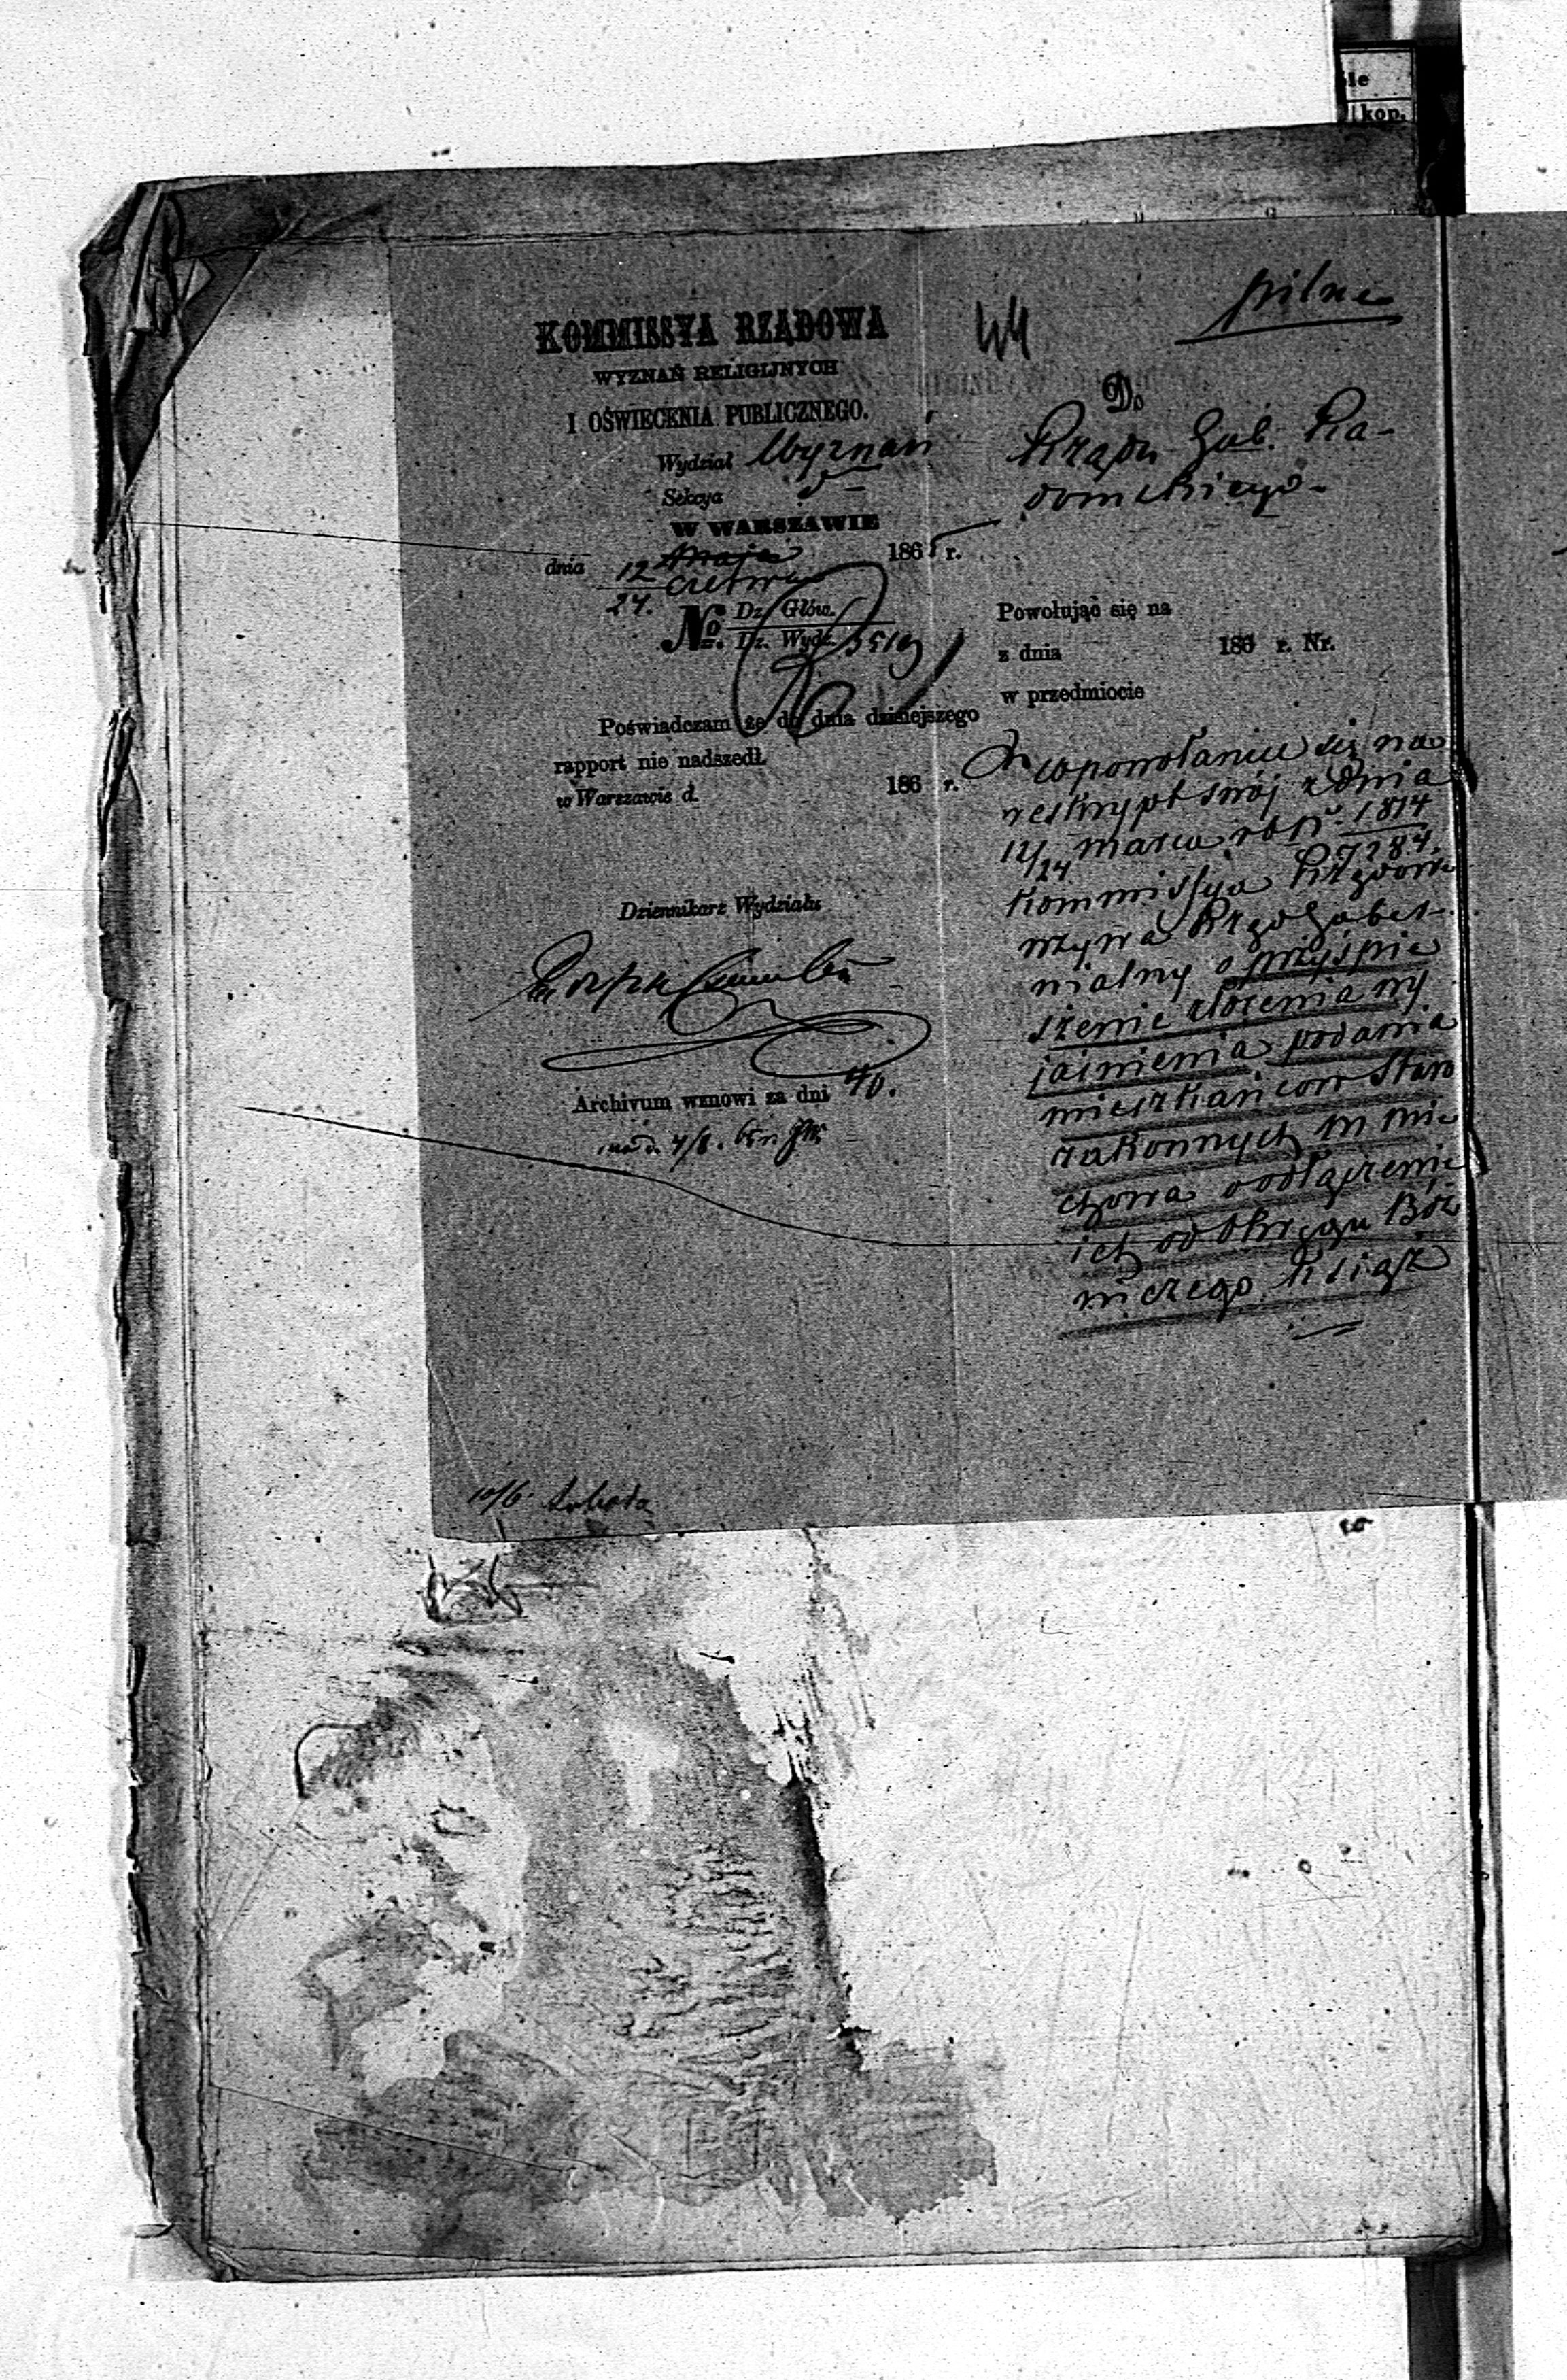 le
kop.
pilne
44
KOMMISSYA RZĄDOWA
WYZNAŃ RELIGIJNYCH
I OŚWIECENIA PUBLICZNEGO.
Wydział Wyznań
Sekcya
W WARSZAWIE
dnia 12 maja 186 r.
24. czerwca
No. Dz. Głów.
Dz. Wydz.
Poświadczam że do dnia dzisiejszego
rapport nie nadszedł.
w Warszawie d. 186 r.
Dziennikarz Wydziału
Archivum wznowi za dni 40.
Do
Rządu Gub. Ra-
domskiego
Powołując się na
z dnia 186 r. Nr.
w przedmiocie
W powołaniu się na
reskrypt swój z dnia
12/24 marca rb Nr 1814
7284.
Kommissya Rządowa
wzywa Rząd Guber-
nialny o przyśpie
szenie złożenia wy
jaśnienia podania
mieszkańców Staro
zakonnych m Mie
chowa o odłączenie
ich od Okręgu Boż
niczego Książ
10/6